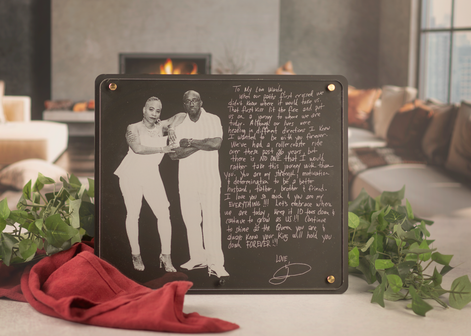 To My Love
When our paths first crossed we
didn't know where it would take us.
That first kiss lit the fire and put
us on a journey to where we are
today. Although our lives were
heading in different directions I knew
I wanted to be with you forever.
We've had a rollercoaster ride
over these past years, but
there is NO ONE that I would
rather take this journey with than
you. You are my strength, motivation
& determination to be a better
husband, father, brother & friend.
I love you so much & you are my
EVERYTHING!!! Let's embrace where
we are today, keep it 10 toes down &
continue to grow as US!!! Continue
to shine as the Queen you are, &
always know your King will hold you
down FOREVER!!!
LOVE